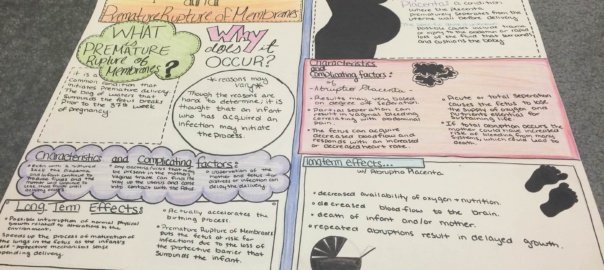 and
Premature Rupture of Membranes
WHAT
is
PREMATURE
Rupture of
Membranes?
It is a
Common condition that
initiates Premature delivery.
The bag of waters that
surrounds the fetus breaks
Prior to the 37th week
of pregnancy
Why
does it
OCCUR?
*reasons may
vary*
Though the reasons are
hard to determine, it is
thought that an infant
who has acquired an
infection may initiate
the process.
Characteristics and Complicating factors:
be present in the mother's
vaginal tract can find its
way to the uterus and come
into contact with the fetus
Observation of the
mother and fetus for
distress or infection can
delay the delivery
Long Term Effects:
Provides interruption of normal physical
growth related to alterations in the
environment.
Speeds up the process of maturation of
the lungs in the fetus as the infant's
protective mechanisms sense
impending delivery.
Actually accelerates the
birthing process.
Premature Rupture of Membranes
puts the fetus at risk for
infections due to the loss of
the protective barrier that
surrounds the infant.
Placental: a condition
where the
Placenta
Prematurely separates from the
uterine wall before delivery
Possible causes include trauma
or injury to the abdomen or rapid
loss of the fluid that surrounds
and cushions the baby
Characteristics
and
Complicating factors:
of
Abruptio Placenta
Results may vary based
on degree of separation.
Partial separation can
result in vaginal bleeding
correlating with abdominal
pain.
The fetus can acquire
decreased blood flow and
responds with an increased
or decreased heart rate.
Acute or total separation
causes the fetus to lose
the supply of oxygen and
nutrients essential for
sustaining life.
If total abruption occurs the
mother could have increased
risk of bleeding from many
systems, which could lead to
death.
longterm effects...
w/ Abruptio Placenta
decreased availability of oxygen + nutrition.
decreased blood flow to the brain.
death of infant and/or mother.
repeated abruptions result in delayed growth.